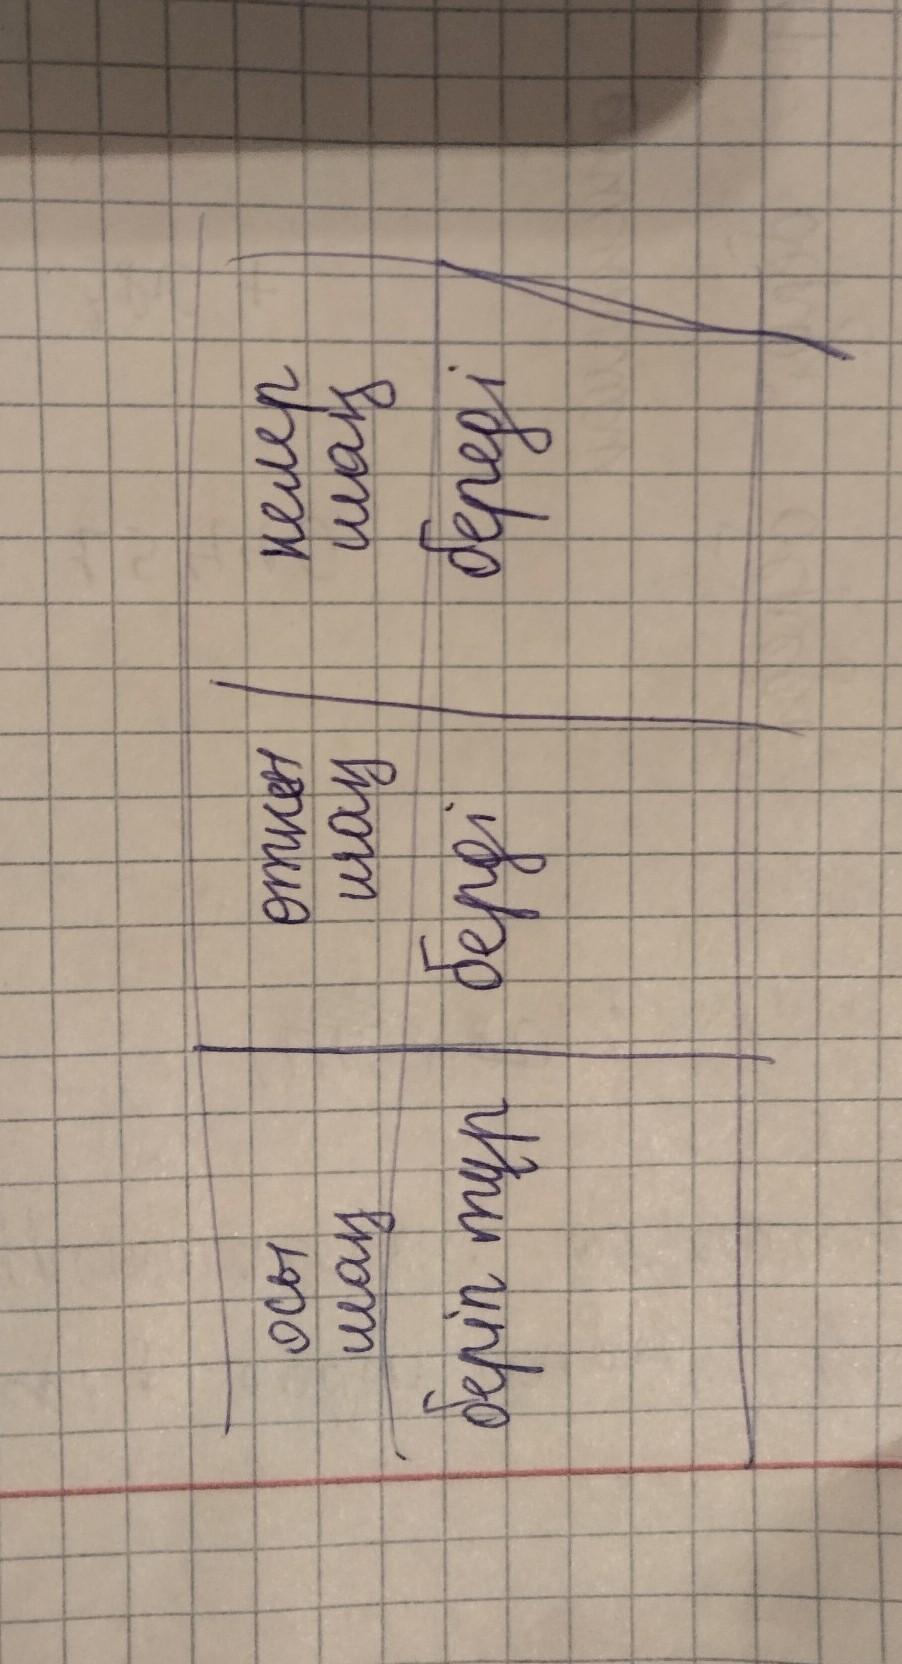 осы
шақ
өткен
шақ
келер
шақ
беріп тұр
берді
береді